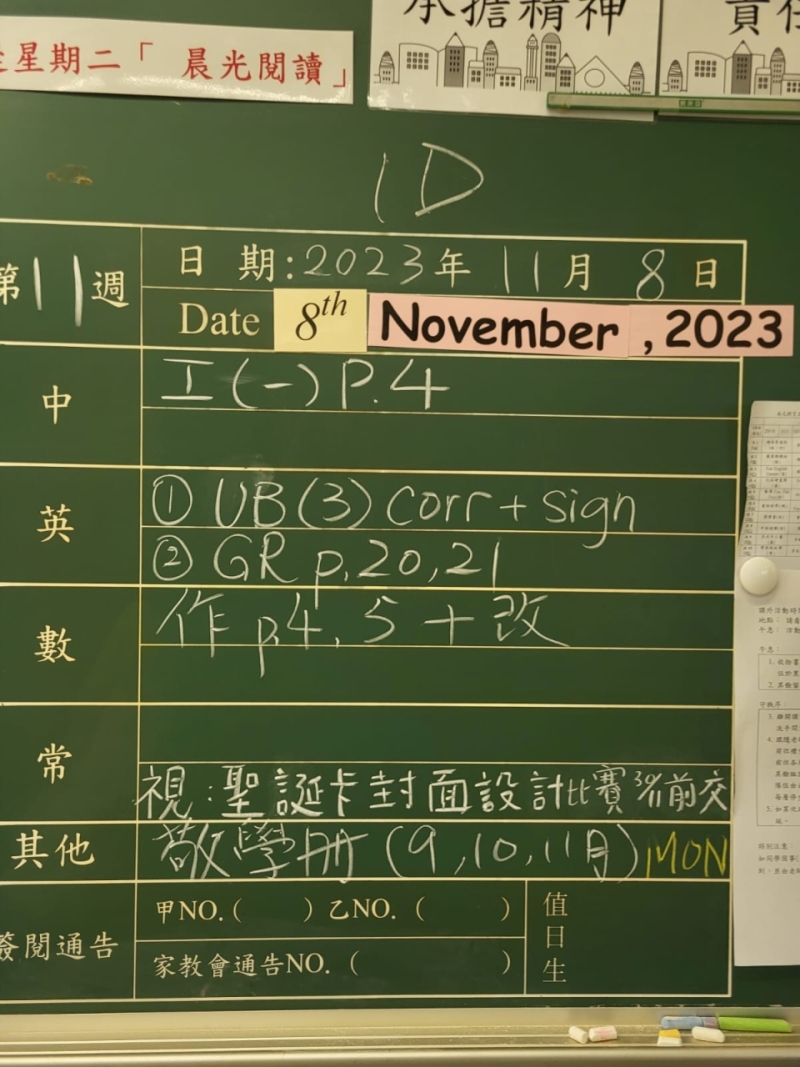 星期二「 晨光閱讀」
承擔精神
責任
1D
第 11 週
日 期:2023年 11月 8日
Date 8th November , 2023
中
工(一) P.4
英
① UB(3) Corr + sign
② GR p.20,21
數
作 p.4, 5 + 改
常
視:聖誕卡封面設計比賽 30/11前交
其他
敬學冊 (9,10,11月) MON
簽閱通告
甲NO. ( ) 乙NO. ( )
家教會通告NO. ( )
值日生